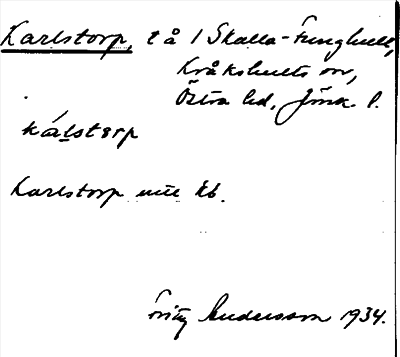 Karlstorp, t å 1 Skalla-Ljunghult,
Kråkshults sn,
Östra hd, Jönk. l.
kálstərp
Karlstorp utt Kb.
Fritz Andersson 1934.